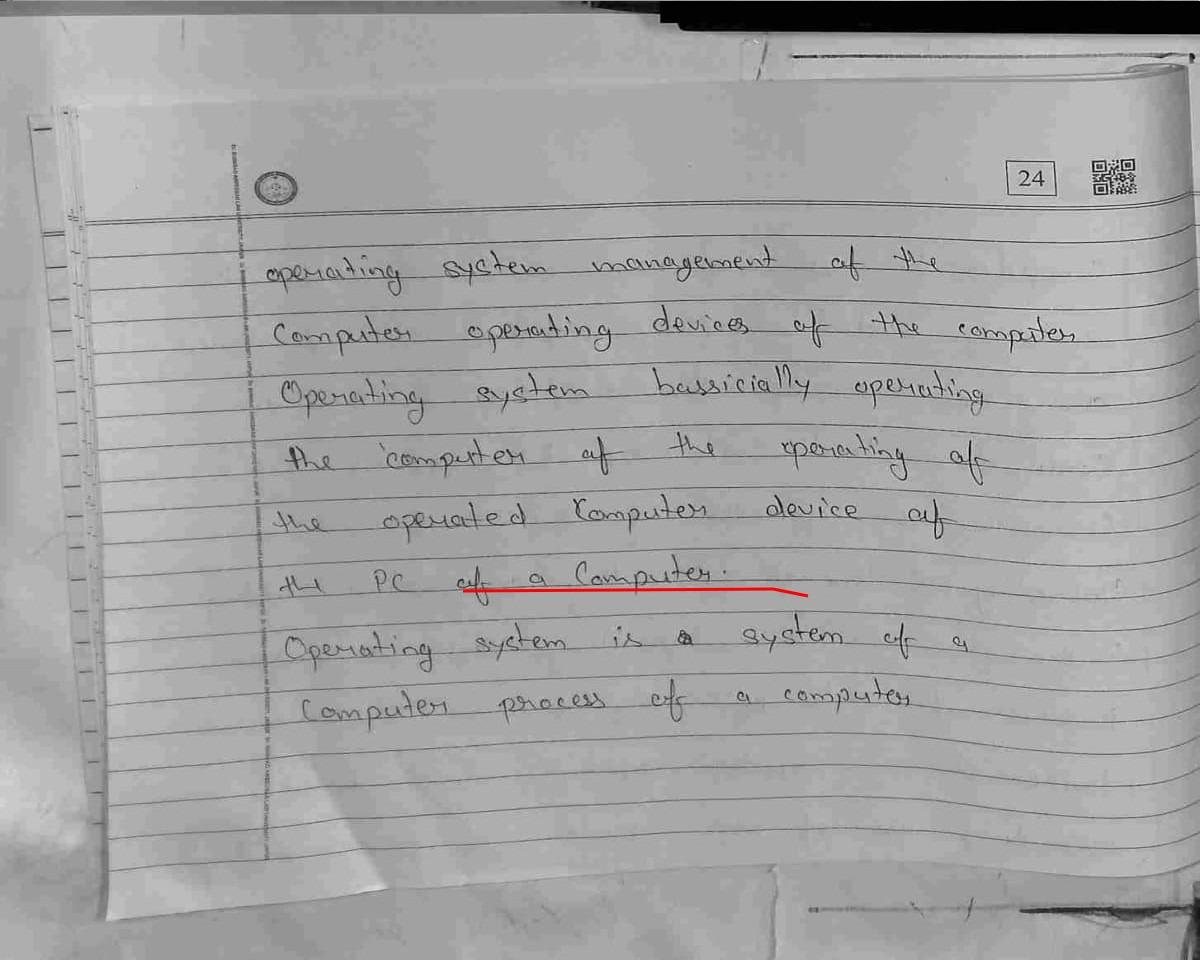 24
operating system management of the
Computer operating devices of the computer
Operating system bassicially operating
the computer of the operating of
the operated Computer device of
the PC of a Computer.
Operating system is a system of a
Computer process of a computer